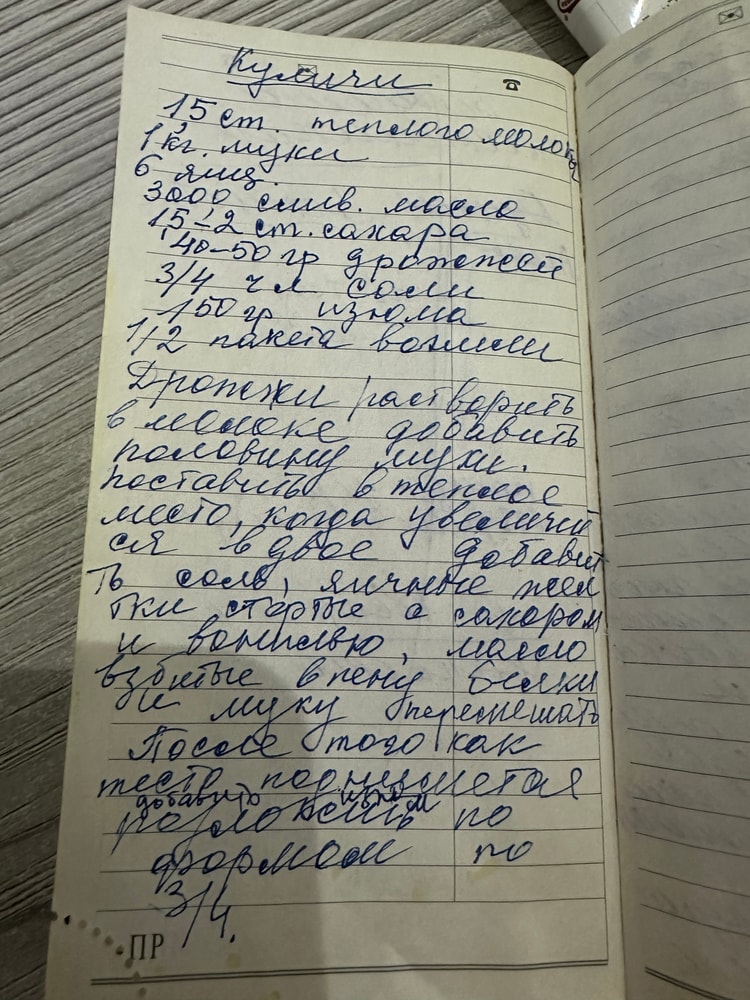 Куличи
1,5 ст. теплого молока
1 кг. муки
6 яиц.
300 слив. масла
1,5-2 ст. сахара
40-50 гр дрожжей
3/4 ч л соли
150 гр изюма
1/2 пакета ванили
Дрожжи растворить
в молоке добавить
половину муки.
поставить в теплое
место, когда увеличит
ся вдвое добави
ть соль, яичные жел
тки стертые с сахаром
и ванилью, масло
взбитые в пену белки
и муку перемешать
После того как
тесто поднимется
добавить изюм
разложить по
формам по
3/4.
ПР